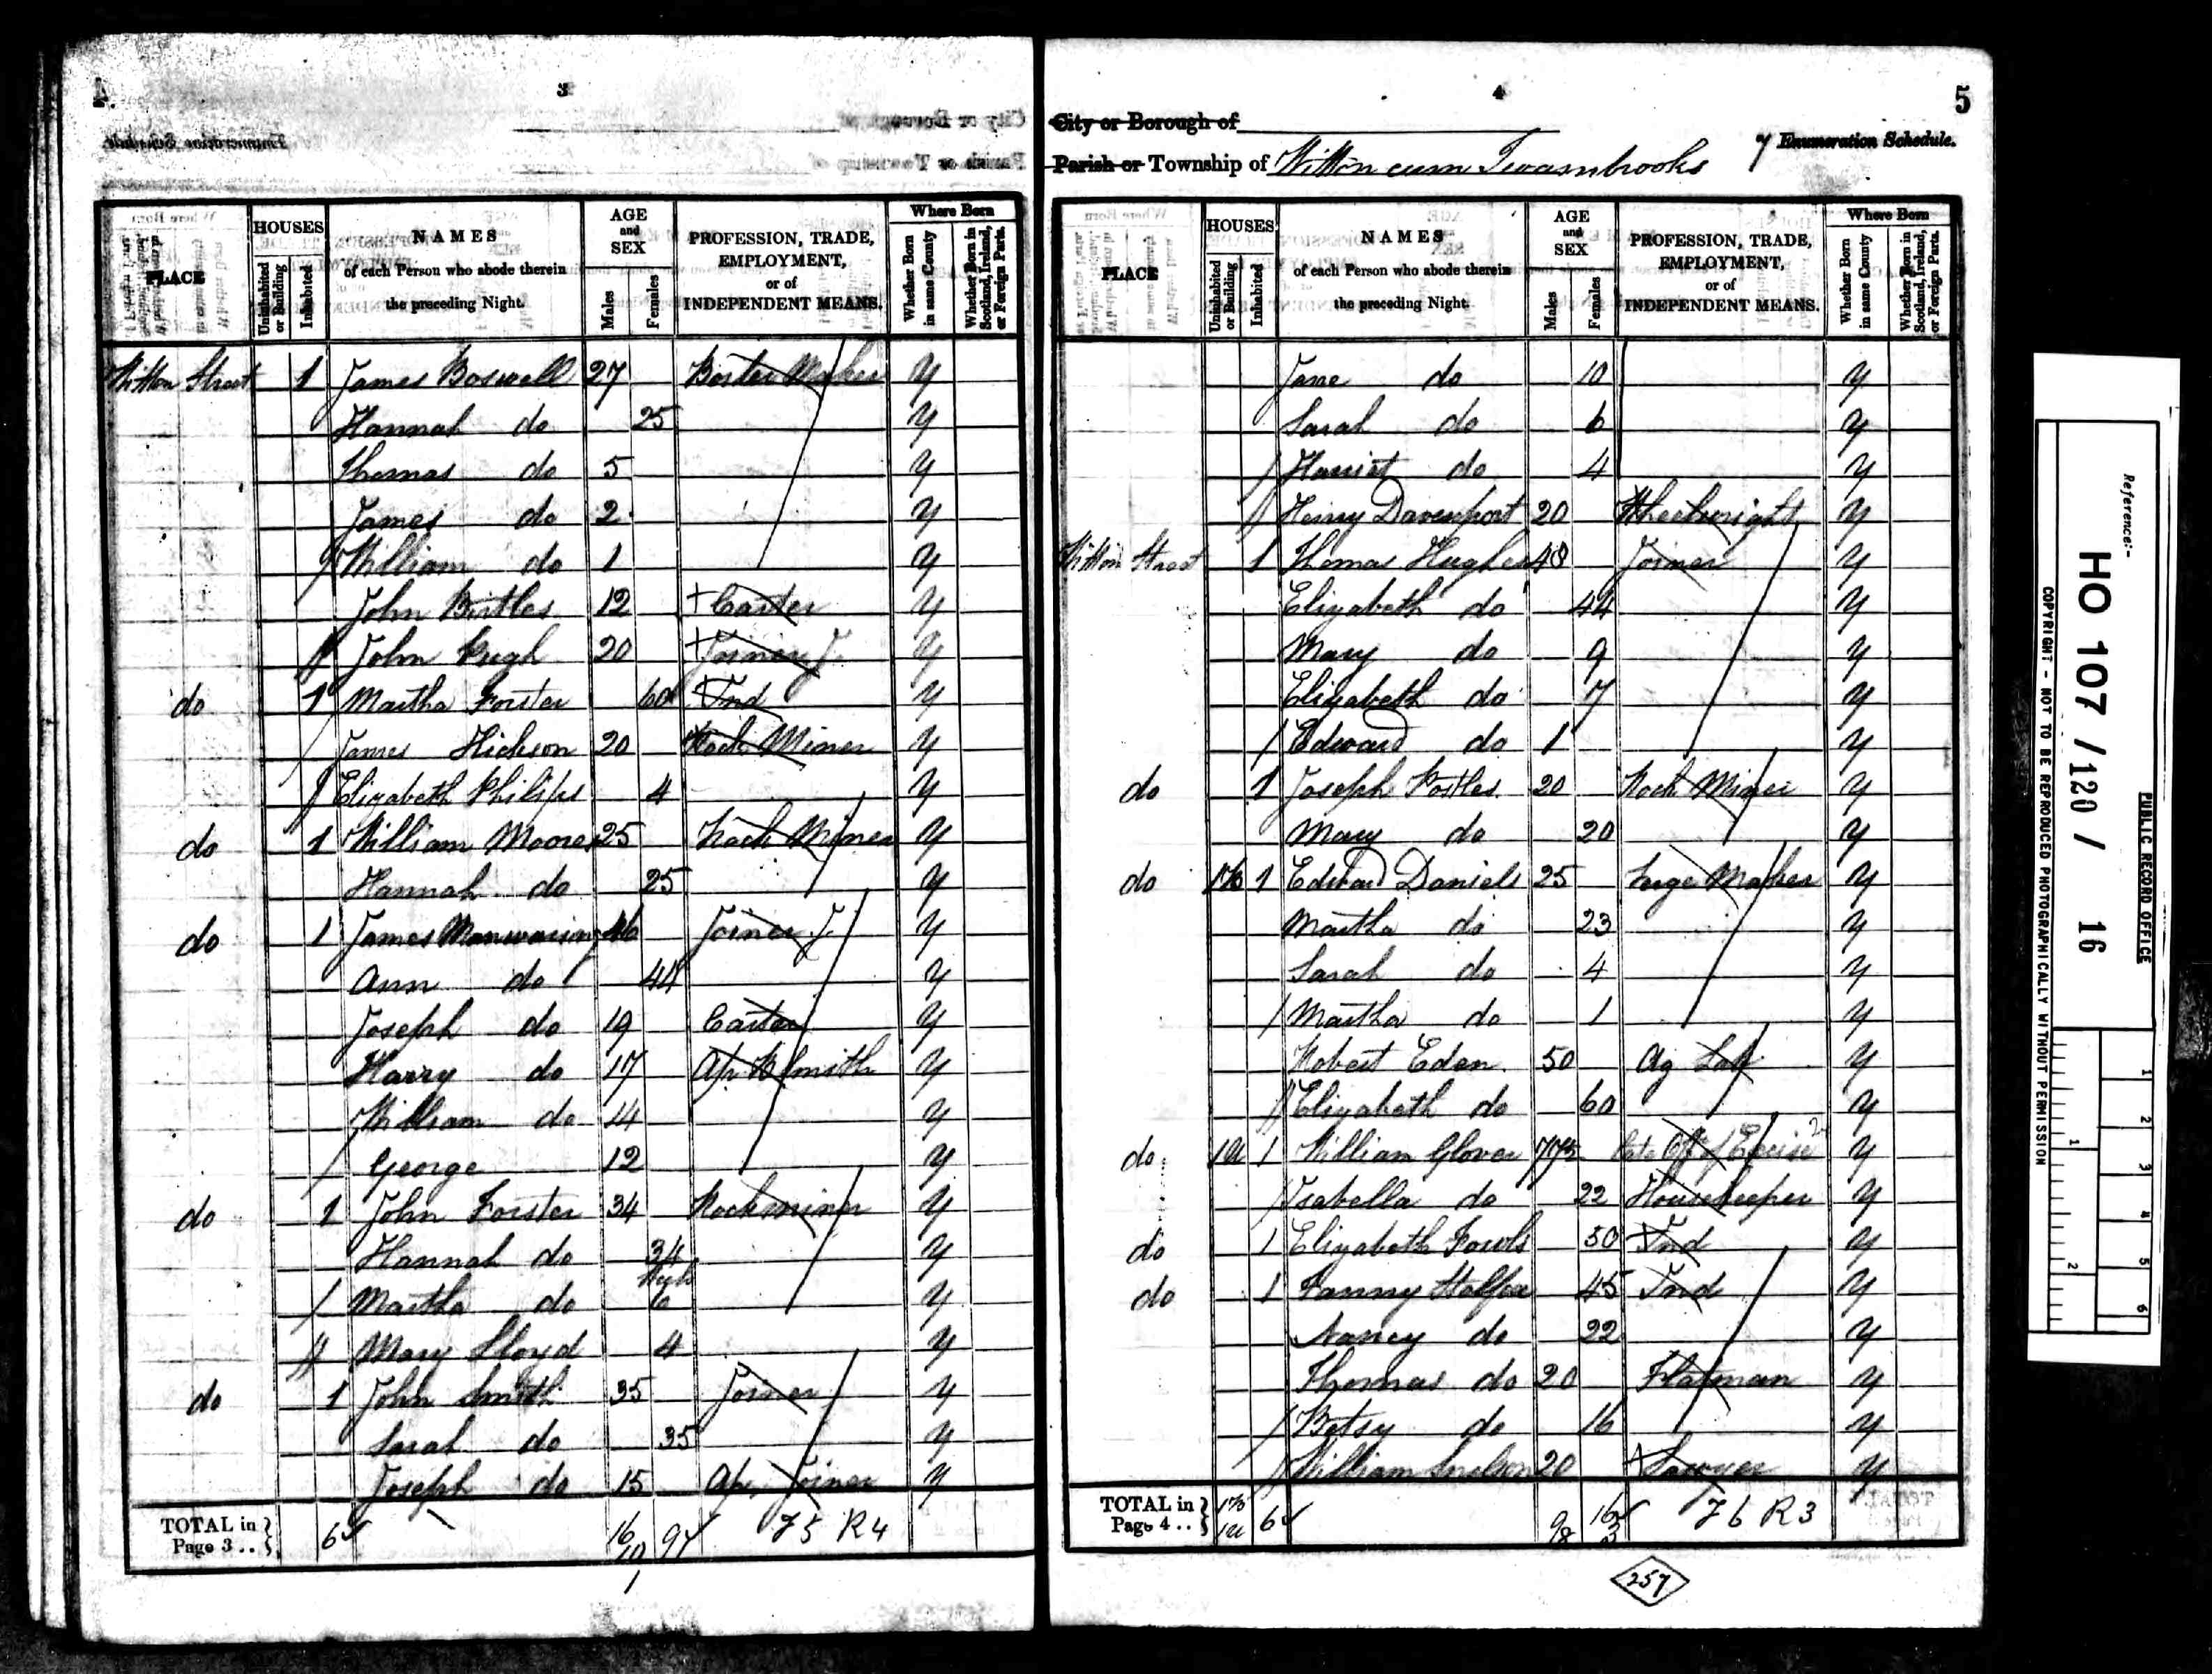 3
HOUSES
NAMES
AGE
and
SEX
PROFESSION, TRADE,
EMPLOYMENT,
or of
INDEPENDENT MEANS.
Where Born
PLACE
Uninhabited or Building
Inhabited
of each Person who abode therein
the preceding Night.
Males
Females
Whether Born in same County
Whether Born in Scotland, Ireland, or Foreign Parts.
Witton Street 1 James Boswell 27 Maker y
Hannah do 25 y
Thomas do 5 y
James do 2 y
William do 1 y
John Birtles 12 + Carter y
John Pugh 20 + Joiner J. y
do 1 Martha Forster 60 + Ind y
James Hickson 20 Rock Miner y
Elizabeth Philips 4 y
do 1 William Moores 25 Rock Miner y
Hannah do 25 y
do 1 James Manwaring 46 Joiner J. y
Ann do 44 y
Joseph do 19 Carter y
Harry do 17 Ap. B Smith y
William do 14 y
George 12 y
do 1 John Forster 34 Rock miner y
Hannah do 34 y
Martha do 6 y
Mary Lloyd 4 y
do 1 John Smith 35 Joiner y
Sarah do 35 y
Joseph do 15 Ap. Joiner y
TOTAL in Page 3 .. 6 16 9 J5 R4
10
4
5
City or Borough of
Parish or Township of Witton cum Twambrooks
7 Enumeration Schedule.
PLACE
HOUSES
Uninhabited or Building
Inhabited
NAMES
of each Person who abode therein
the preceding Night.
AGE
and
SEX
Males
Females
PROFESSION, TRADE,
EMPLOYMENT,
or of
INDEPENDENT MEANS.
Where Born
Whether Born in same County
Whether Born in Scotland, Ireland, or Foreign Parts.
Jane do 10 y
Sarah do 6 y
Harriet do 4 y
Henry Davenport 20 Wheelwright y
Witton Street 1 Thomas Hughes 48 Joiner y
Elizabeth do 44 y
Mary do 9 y
Elizabeth do 7 y
Edward do 1 y
do 1 Joseph Postles 20 Rock Miner y
Mary do 20 y
do 1B 1 Edward Daniels 25 Maker y
Martha do 23 y
Sarah do 4 y
Martha do 1 y
Robert Eden 50 Ag Lab y
Elizabeth do 60 y
do 1U 1 William Glover 75 late Off of Excise y
Isabella do 22 Housekeeper y
do 1 Elizabeth Fowls 50 Ind y
do 1 Fanny 45 Ind y
Nancy do 22 y
Thomas do 20 Flatman y
Betsy do 16 y
William Snelson 20 + Sawyer y
TOTAL in Page 4 .. 1B 6 9 16 J6 R3
1U 8 3
257
Reference:-
HO 107 / 120 / 16
PUBLIC RECORD OFFICE
COPYRIGHT - NOT TO BE REPRODUCED PHOTOGRAPHICALLY WITHOUT PERMISSION
1
2
1
2
3
4
5
6